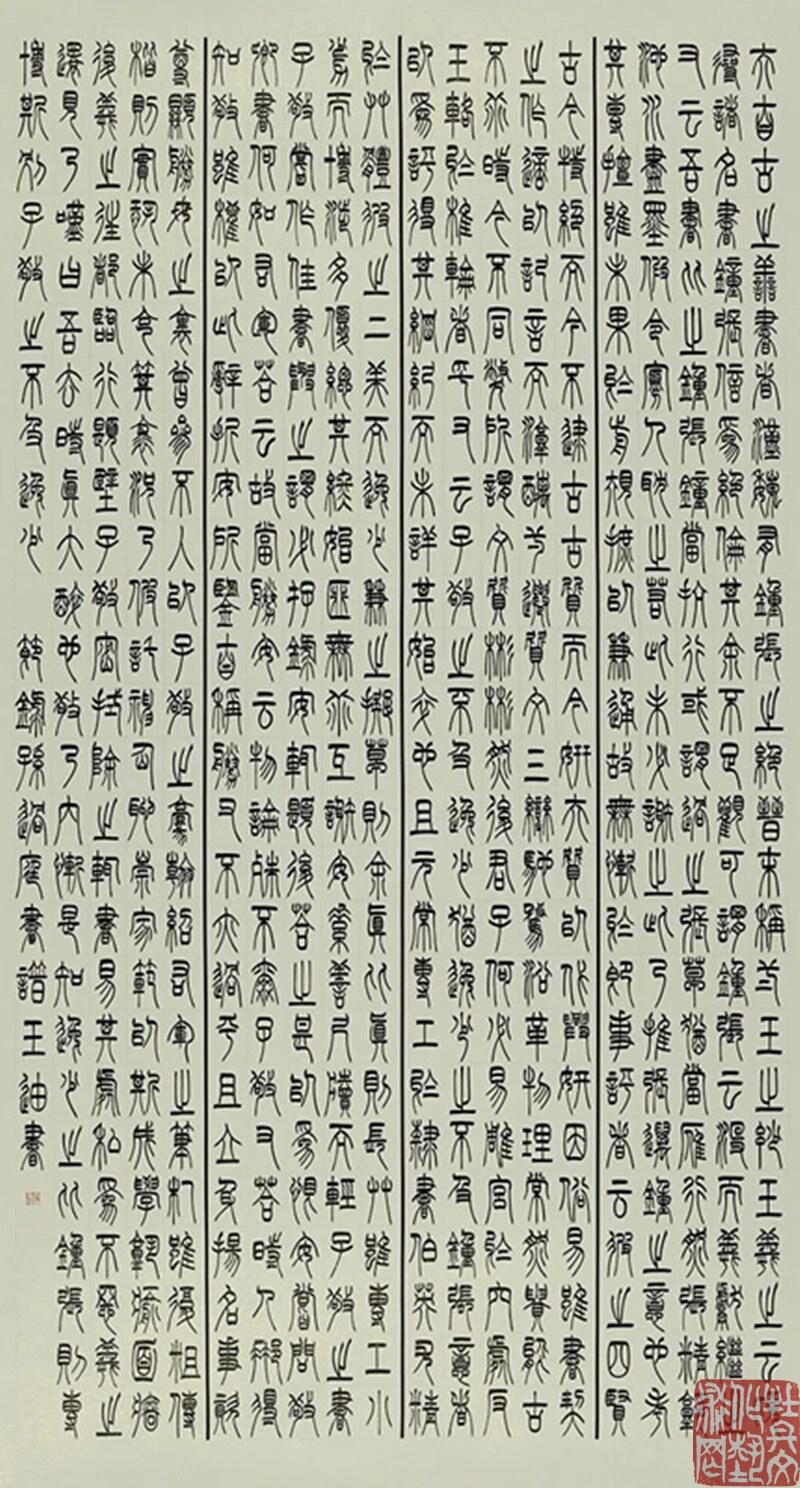 夫自古之善書者漢魏有鍾張之絕晉末稱二王之妙王羲之云頃
尋諸名書鍾張信爲絕倫其餘不足觀可謂鍾張云沒而羲獻繼之
又云吾書比之鍾張鍾當抗行或謂過之張草猶當雁行然張精熟
池水盡墨假令寡人耽之若此未必謝之此乃推張邁鍾之意也考
其專擅雖未果於前規摭以兼通故無慚於即事評者云彼之四賢
古今特絕而今不逮古古質而今妍夫質以代興妍因俗易雖書契
之作適以記言而淳醨一遷質文三變馳騖沿革物理常然貴能古
不乖時今不同弊所謂文質彬彬然後君子何必易雕宮於穴處反
玉輅於椎輪者乎又云子敬之不及逸少猶逸少之不及鍾張意者
以爲評得其綱紀而未詳其始卒也且元常專工於隸書伯英尤精
於草體彼之二美而逸少兼之擬草則餘真比真則長草雖專工小
劣而博涉多優總其終始匪無乖互謝安素善尺牘而輕子敬之書
子敬嘗作佳書與之謂必存錄安輒題後答之甚以爲恨安嘗問敬
卿書何如右軍答云故當勝安云物論殊不爾子敬又答時人那得
知敬雖權以此辭折安所鑒自稱勝父不亦過乎且立身揚名事資
尊顯勝母之里曾參不入以子敬之豪翰紹右軍之筆札雖復粗傳
楷則實恐未克箕裘況乃假託神仙恥崇家範以斯成學孰愈面牆
後羲之往都臨行題壁子敬密拭除之輒書易其處私爲不惡羲之
還見乃歎曰吾去時真大醉也敬乃內慚是知逸少之比鍾張則專
博斯別子敬之不及逸少 節錄孫過庭書譜王迪書